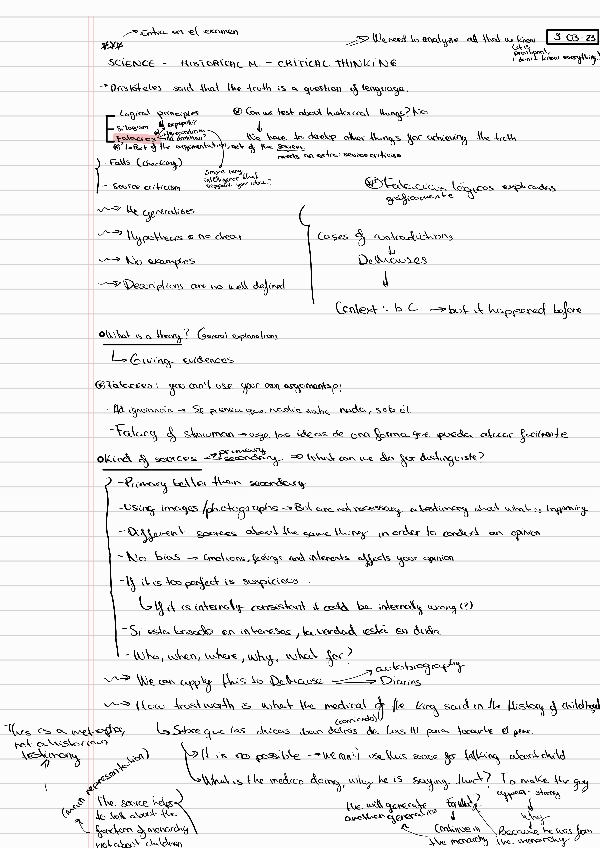 Entra en el examen
We need to analyze all that we know
3 03 23
SCIENCE - HISTORICAL M - CRITICAL THINKING
Aristoteles said that the truth is a question of language.
Logical principles
Can we test about historical things? No
Silogism
Falacies
We have to develop other things for achieving the truth
needs an extra: source criticism
Falls (checking)
Source criticism
Falacias lógicas explicadas
graficamente
He generalises
Hypothesis is no clear
Cases of contradictions
No examples
DeMauses
Descriptions are no well defined
Context: b C → but it happened before
What is a theory? (General explanation)
Giving evidences
Falacies: you can't use your own arguments?!
Ad ignorancia → Se piensa que nadie sabe nada, solo él
Falacy of strawman → cogo las ideas de una forma que pueda atacar facilmente
Kind of sources → primary
secondary ⇒ What can we do for distinguiste?
- Primary better than secondary
- Using images/photographs → But are not necessary a testimony what what is happening
- Different sources about the same thing in order to conduct an opinion
- No bias → Emotions, feelings and interests affects your opinion
- If it is too perfect is suspicious.
If it is internally consistent it could be internally wrong (?)
- Si esta basado en intereses, la verdad está en duda
- Who, when, where, why, what for?
autobiography
We can apply this to DeMause
Diaries
How trustworth is what the medical of the king said in the History of childhood
(contexto)
This is a metaphor,
not a historian
testimony
Sobre que las chicas iban detras de Luis III para tocarle el pene.
It is no possible → we can't use this source for talking about child
What is the medicin doing, why he is saying that? To make the guy
appear strong
(main representation)
The source helps
to talk about the
function of monarchy
not about children
He will generate
another generation
For what?
Why
Continue in
the monarchy
Because he was from
the monarchy